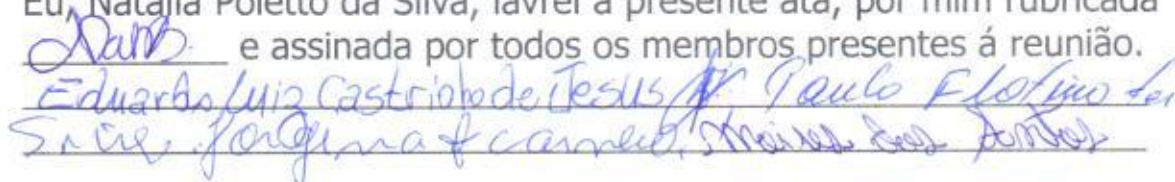 Eu, Natalia Poletto da Silva, lavrei a presente ata, por mim rubricada
e assinada por todos os membros presentes á reunião.
Eduardo Luiz Castrioto de Jesus Paulo
Jorgina F carneiro, Moises dos Santos